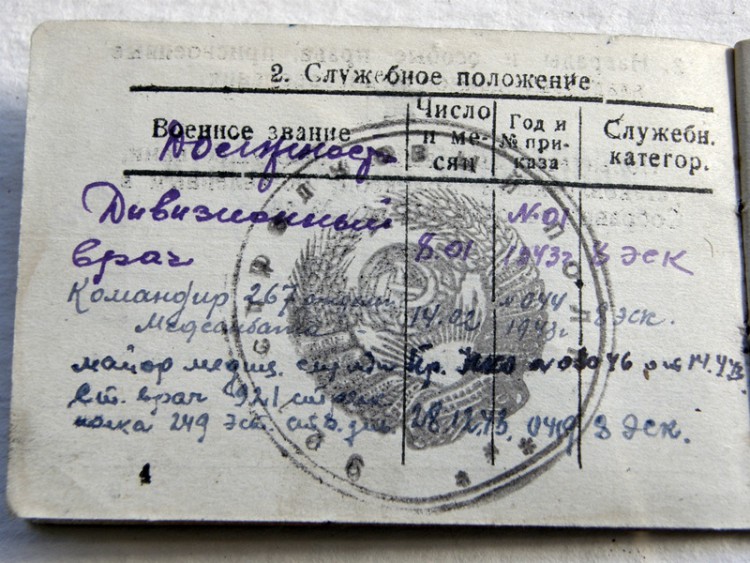 2. Служебное положение
Военное звание
Должность
Число
и ме-
сяц
Год и
№ при-
каза
Служебн.
категор.
Дивизионный
врач
8.01
№01
1943г
8 ЭСК
Командир 267 отдел.
Медсанбата
14.02
№044
1943г
8 Эск.
майор медиц. службы Пр. НКО от 14.4.43
Ст. врач 921 стрелк
полка 249 Эст. стр. див
28.12.43.
0419
8 Эск.
4